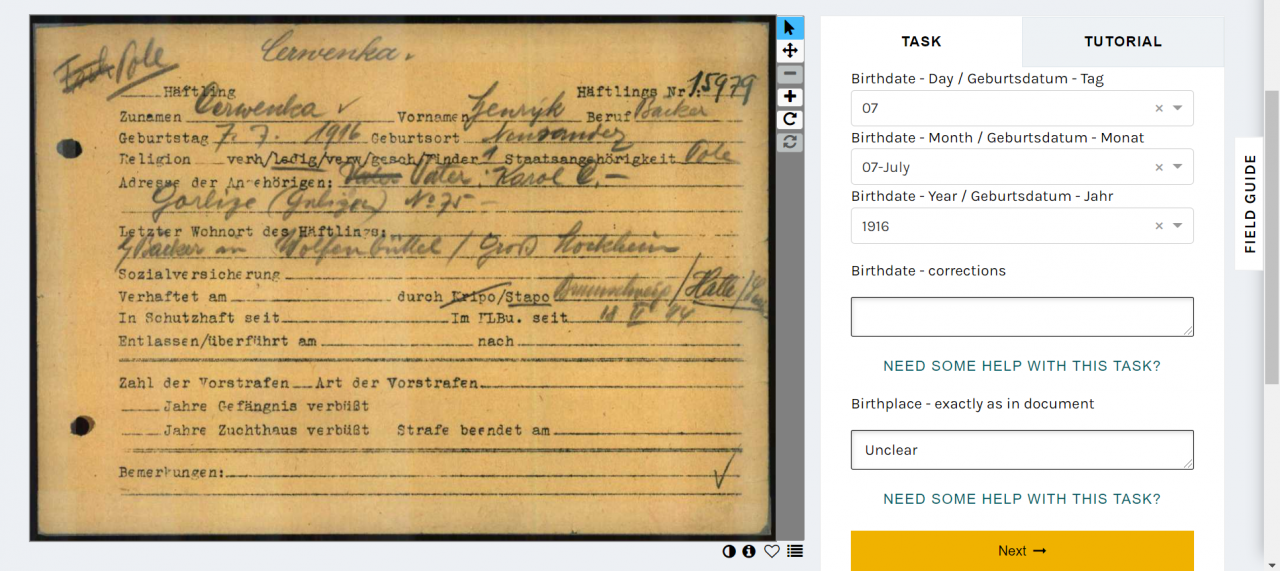 Cerwenka.
Pole
Häftling
Häftlings Nr. 15979
Zunamen Cerwenka Vornamen Henryk Beruf Backer
Geburtstag 7. 7. 1916 Geburtsort
Religion verh/ledig/verw/gesch/Kinder 1 Staatsangehörigkeit Pole
Adresse der Angehörigen: Vater Vater: Karol C. –
Gorlize (Galizien) No 75 –
Letzter Wohnort des Häftlings:
Backer in Wolfenbüttel / Groß
Sozialversicherung
Verhaftet am durch Kripo/Stapo Braunschweig / Halle /
In Schutzhaft seit Im KLBu. seit 18 VI 44
Entlassen/überführt am nach
Zahl der Vorstrafen Art der Vorstrafen
Jahre Gefängnis verbüßt
Jahre Zuchthaus verbüßt Strafe beendet am
Bemerkungen:
TASK
TUTORIAL
Birthdate - Day / Geburtsdatum - Tag
07
Birthdate - Month / Geburtsdatum - Monat
07-July
Birthdate - Year / Geburtsdatum - Jahr
1916
Birthdate - corrections
NEED SOME HELP WITH THIS TASK?
Birthplace - exactly as in document
Unclear
NEED SOME HELP WITH THIS TASK?
Next →
FIELD GUIDE